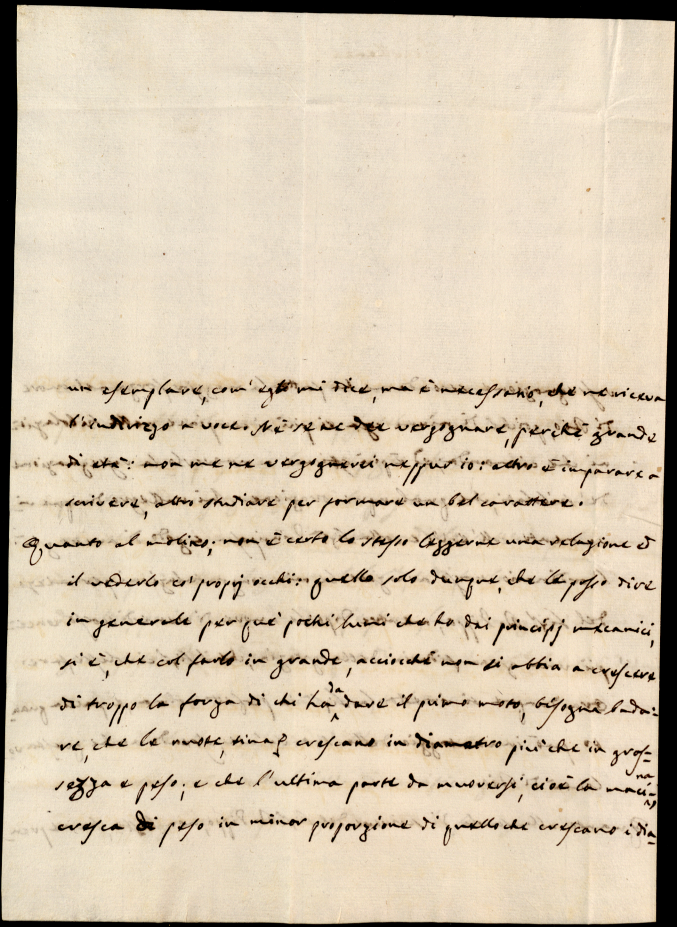 un esemplare, com' egli mi dice, ma è necessario, che ne riceva
l'indirizzo a voce. Nè se ne dee vergognare, perchè grande
di età: non me ne vergognerei neppur io: altro è imparare a
scrivere, altro studiare per formare un bel carattere.
Quanto al molino; non è certo lo stesso leggerne una relazione e
il vederlo co' proprj occhi: quello solo dunque, che le posso dire
in generale per que' pochi lumi che ho dai principj mecanici,
si è, che col farlo in grande, acciocchè non si abbia a crescere
di troppo la forza di chi ha da dare il primo moto, bisogna bada=
re, che le ruote, crescano in diametro più che in gros=
sezza e peso; e che l'ultima parte da muoversi, cioè la macina
cresca di peso in minor proporzione di quello che crescano i dia=